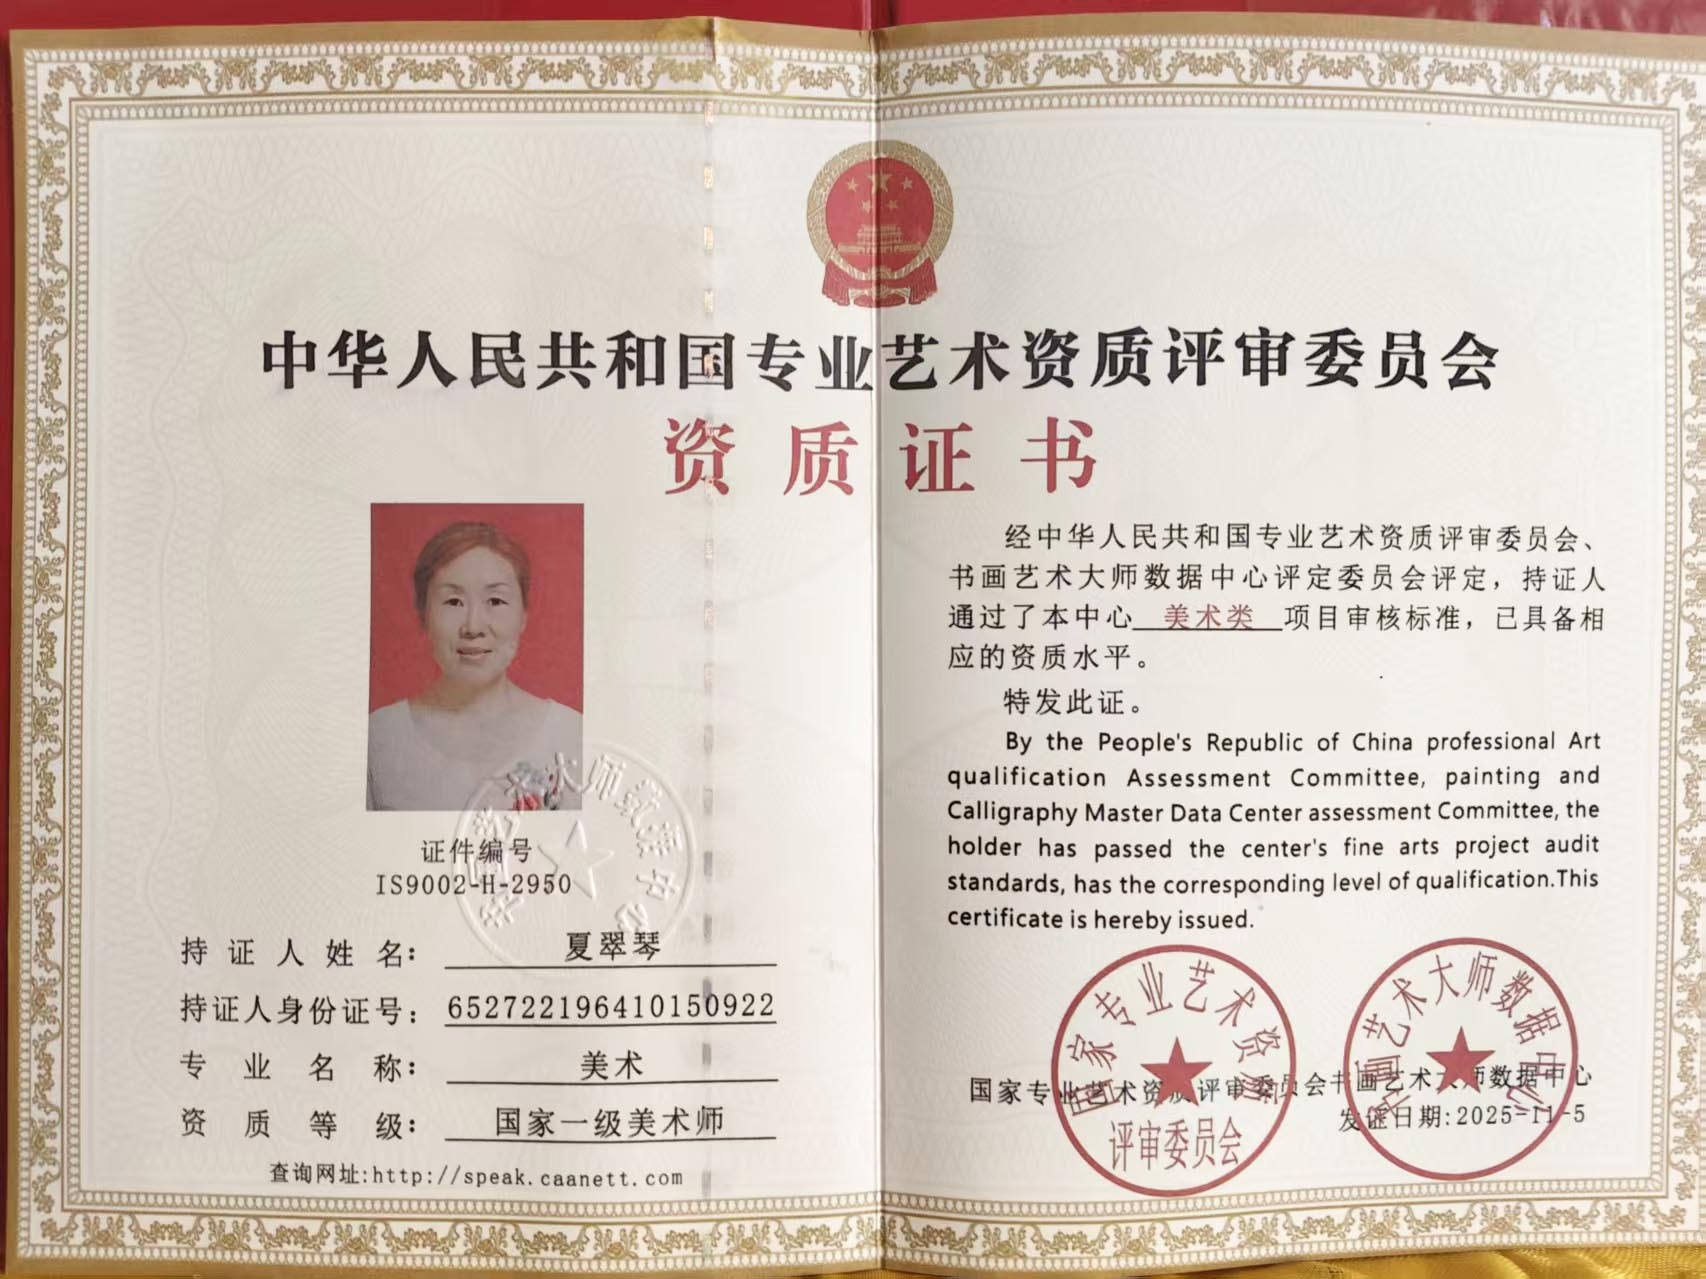 中华人民共和国专业艺术资质评审委员会
资质证书
证件编号
IS9002-H-2950
持证人姓名： 夏翠琴
持证人身份证号： 652722196410150922
专业名称： 美术
资质等级： 国家一级美术师
查询网址:http://speak.caanett.com
经中华人民共和国专业艺术资质评审委员会、
书画艺术大师数据中心评定委员会评定，持证人
通过了本中心 美术类 项目审核标准，已具备相
应的资质水平。
特发此证。
By the People's Republic of China professional Art
qualification Assessment Committee, painting and
Calligraphy Master Data Center assessment Committee, the
holder has passed the center's fine arts project audit
standards, has the corresponding level of qualification.This
certificate is hereby issued.
国家专业艺术资质评审委员会书画艺术大师数据中心
发证日期:2025-11-5
国家专业艺术资质
评审委员会
书画艺术大师数据中心
书画艺术大师数据中心